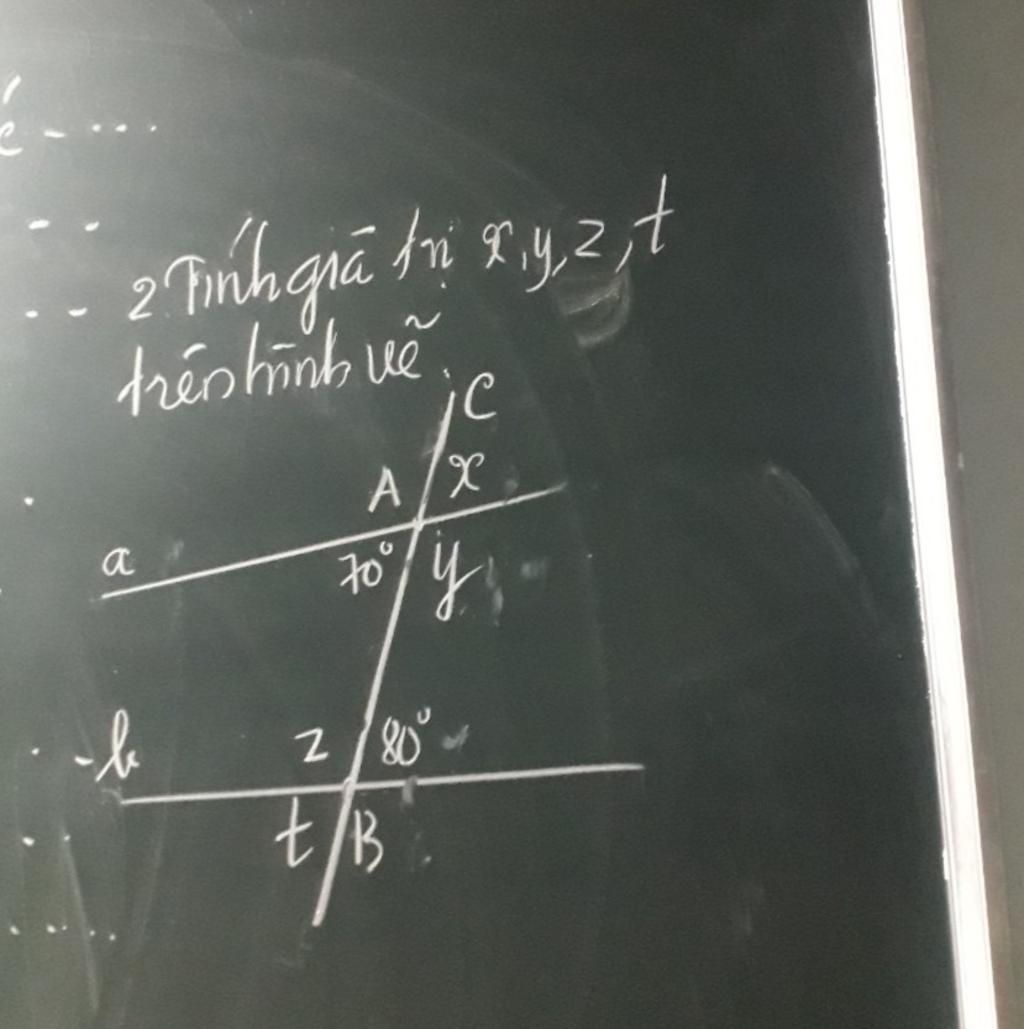 é - ...
2. Tính giá trị x, y, z, t
trên hình vẽ.
C
A x
a 70° y
b z 80°
t B